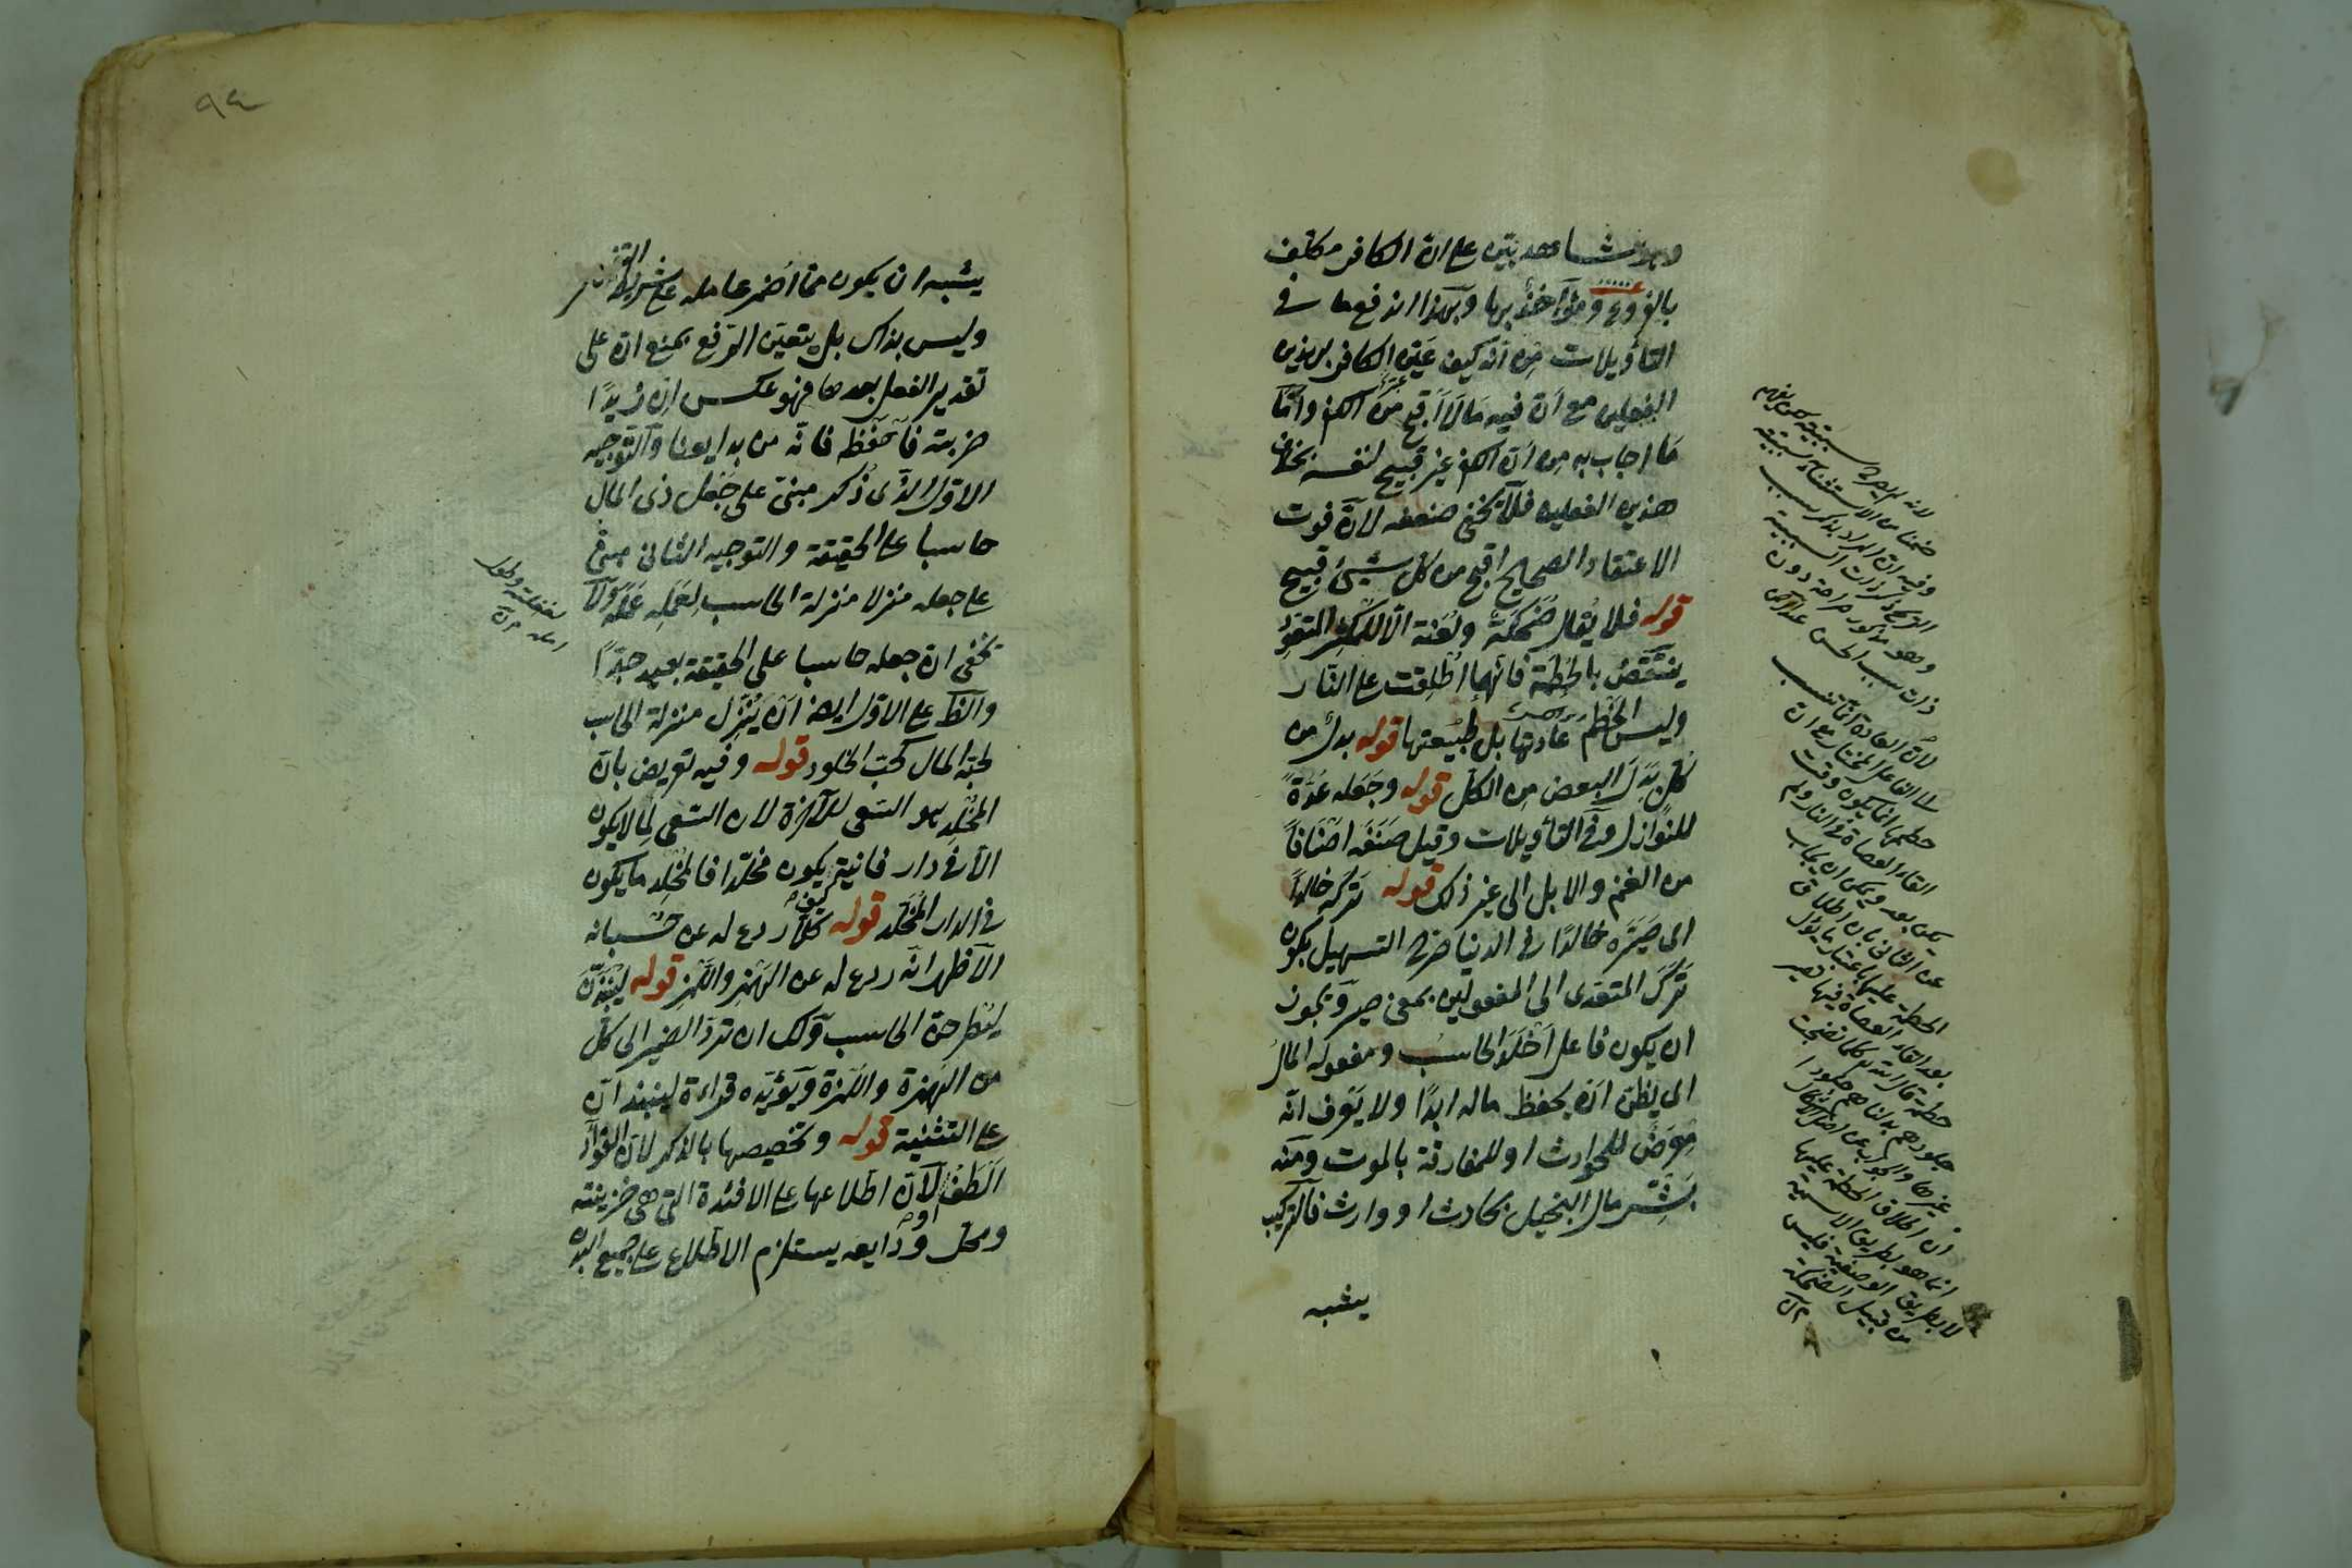 وهو شاهد بين على ان الكافر مكلف
بالفروع ومؤاخذ بها وبهذا اندفع ما في
التأويلات من انه كيف عيّن الكافر بهذين
الفعلين مع ان فيه ما اقبح من الكفر واما
ما اجاب به من ان الكفر غير قبيح لنفسه بخلاف
هذين الفعلين فلا يخفى ضعفه لان فوت
الاعتقاد الصحيح اقبح من كل شيئ قبيح
قوله فلا يقال ضُحَكة ولُعَنة الا للمكثر المتعوّد
ينتقض بالحطمة فانها اطلقت على النار
وليس الحطم عادتها بل طبيعتها قوله بدل من
كل بدل البعض من الكل قوله وجعله عُدّةً
للنوازل وفي التأويلات وقيل صنفه اصنافاً
من الغنم والابل الى غير ذلك قوله تركه خالداً
اى صيّره خالدًا في الدنيا صرح التسهيل بكون
ترك المتعدى الى المفعولين بمعنى صير ويجوز
ان يكون فاعل اخلد الحاسب ومفعوله المال
اى يظن انه يحفظ ماله ابدًا ولا يعرف انه
معرض للحوادث او للمفارقة بالموت ومنه
بشّر مال البخيل بحادث او وارث فالتركيب
يشبه
لان العادة انما تنسب
الى الفاعل المختار مع ان
حطمها انما يكون وقت
القاء العصاة في النار ولم
يكن بعد ويمكن ان يجاب
عن الثانى بان اطلاق
الحطمة عليها باعتبار ما يؤل
بعد القاء العصاة فيها
حطمة قال الله كلما نضجت
جلودهم بدلناهم جلودا
غيرها والجواب عن اصل الاشكال
ان اطلاق الحطمة عليها
انما هو بطريق الاسمية
لا بطريق الوصفية فليس
من قبيل الضحكة
٩٤
يشبه ان يكون مما اضمر عامله على شريطة التفسير
وليس بذاك بل يتعين الرفع بمنع ان على
تقدير الفعل بعدها فهو عكس ان زيدًا
ضربته فاحفظه فانه من بدايعنا والتوجيه
الاول الذى ذكر مبنى على جعل ذى المال
حاسبا على الحقيقة والتوجيه الثانى مبنى
على جعله منزلا منزلة الحاسب لعمله عمله ولا
يخفى ان جعله حاسبا على الحقيقة بعيد جدًا
والظ على الاول ايضا ان ينزل منزلة الحاسب
لحبه المال كحب الخلود قوله وفيه تعريض بان
المخلد هو السعى للآخرة لان السعى لما لا يكون
الا في دار فانية كيف يكون مخلدا فالمخلد ما يكون
في الدار المخلد قوله كلا ردع له عن حسبانه
الاظهر انه ردع له عن الهمز واللمز قوله لينبذن
ليطرحن الحاسب ولك ان ترد الضمير الى كل
من الهمزة واللمزة ويؤيده قراءة لينبذان
على التثنية قوله وتخصيصها بالذكر لان الفؤاد
الطف او لان اطلاعها على الافئدة التى هى خزينته
ومحل ودايعه يستلزم الاطلاع على جميع البدن